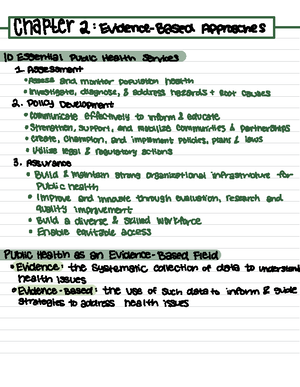 Chapter 2: Evidence-Based Approaches
10 Essential Public Health Services
1. Assessment
• Assess and monitor population health
• Investigate, diagnose, & address hazards + root causes
2. Policy Development
• Communicate effectively to inform & educate
• Strengthen, support, and mobilize communities & partnerships
• Create, champion, and implement policies, plans & laws
• Utilize legal & regulatory actions
3. Assurance
• Build & maintain strong organizational infrastructure for
Public health
• Improve and innovate through evaluation, research and
quality improvement
• Build a diverse & skilled workforce
• Enable equitable access
Public Health as an Evidence-Based Field
• Evidence: the systematic collection of data to understand
health issues
• Evidence-Based: the use of such data to inform & guide
strategies to address health issues